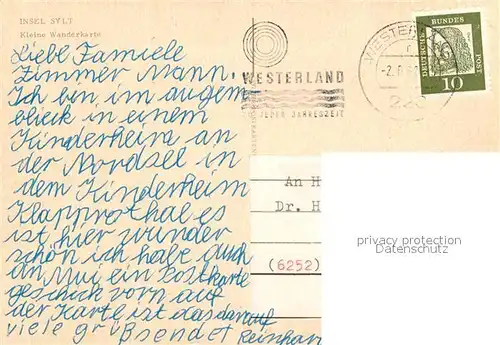 INSEL SYLT
Kleine Wanderkarte
Liebe Famiele
Zimmer Mann.
Ich bin im augem
blick in einem
Kinderheim an
der Nordsee in
dem Kinderheim
Klapprothal es
ist hier wunder
schön ich habe auch
an Mui ein Postkarte
geschick vorn auf
der Karte ist das darauf
viele grüß sendet Reinhar
WESTERLAND
ZU JEDER JAHRESZEIT
WESTER
-2.6.6
DEUTSCHE BUNDES POST
10
An H
Dr. H
(6252)
privacy protection
Datenschutz